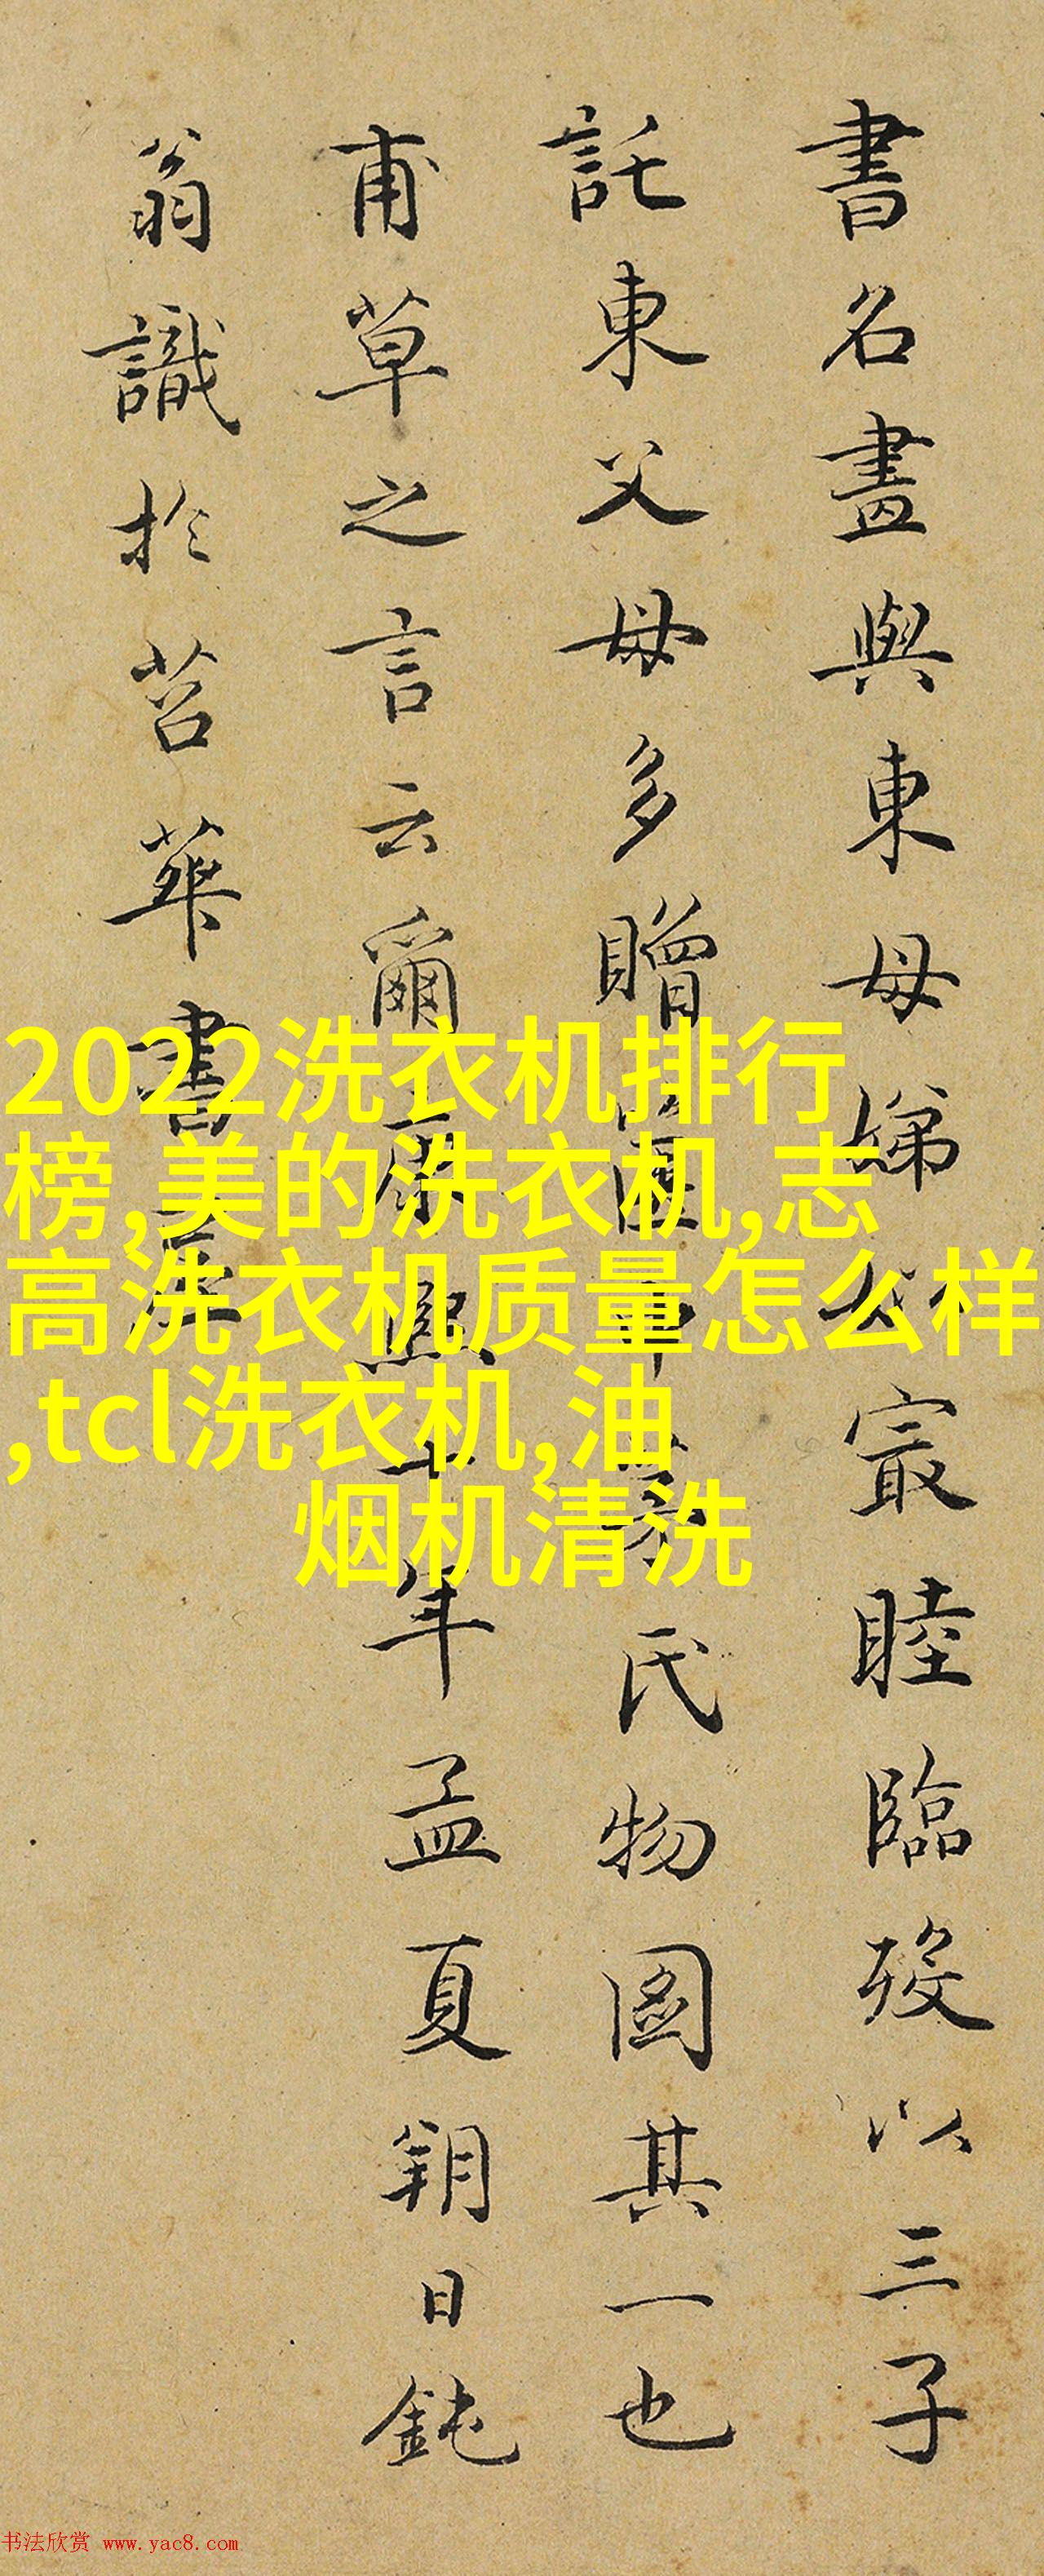 書名畫與東母娣㝡睦臨歿以三子
託東父母多贈氏物圖其一也
甫草之言云爾康熙十年孟夏朔日鈍
翁識於苕華書屋
2022洗衣机排行
榜,美的洗衣机,志
高洗衣机质量怎么样
,tcl洗衣机,油
烟机清洗
书法欣赏 www.yac8.com